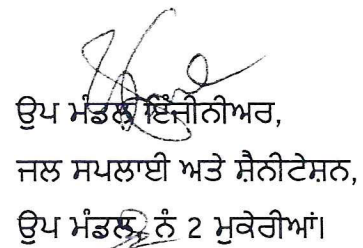 ਉਪ ਮੰਡਲ ਇੰਜੀਨੀਅਰ,
ਜਲ ਸਪਲਾਈ ਅਤੇ ਸ਼ੈਨੀਟੇਸ਼ਨ,
ਉਪ ਮੰਡਲ, ਨੰ 2 ਮੁਕੇਰੀਆਂ।